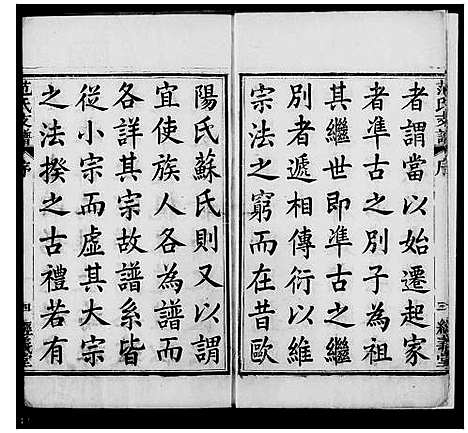 范氏支譜
序
三
者謂當以始遷起家
者準古之別子為祖
其繼世即準古之繼
別者遞相傳衍以維
宗法之窮而在昔歐
陽氏蘇氏則又以謂
宜使族人各為譜而
各詳其宗故譜系皆
從小宗而虛其大宗
之法揆之古禮若有
范氏支譜
序
四